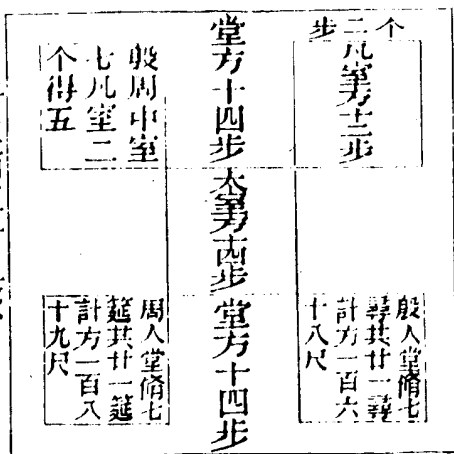 个
二
步
凡室方十二步
殷人堂脩七
尋共廿一尋
計方一百六
十八尺
堂方十四步
太室方十四步
堂方十四步
殷周中室
七凡室二
个得五
周人堂脩七
筵共廿一筵
計方一百八
十九尺